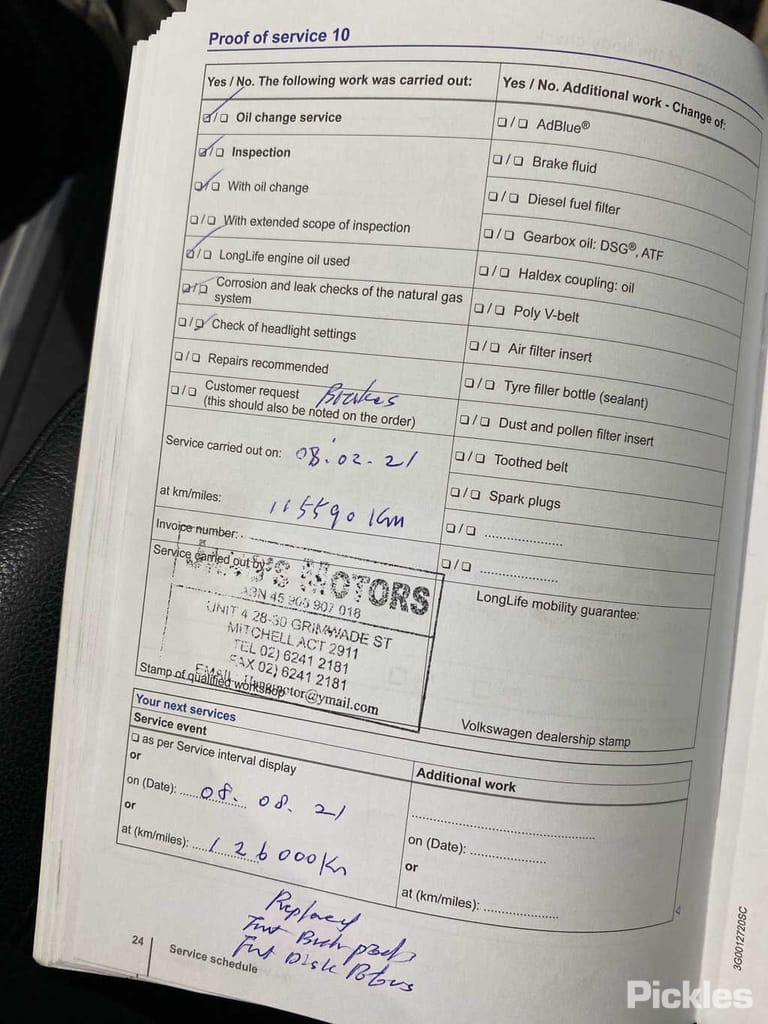 Proof of service 10
Yes / No. The following work was carried out:
☑/❑ Oil change service
☑/❑ Inspection
☑/❑ With oil change
❑/❑ With extended scope of inspection
☑/❑ LongLife engine oil used
☑/❑ Corrosion and leak checks of the natural gas
system
❑/☑ Check of headlight settings
❑/❑ Repairs recommended
❑/❑ Customer request Brakes
(this should also be noted on the order)
Service carried out on: 08.02.21
at km/miles: 115590 Km
Invoice number:
Service carried out by
MOTORS
ABN 45 905 907 018
UNIT 4 28-30 GRIMWADE ST
MITCHELL ACT 2911
TEL 02) 6241 2181
FAX 02) 6241 2181
Stamp of qualified workshop
Yes / No. Additional work - Change of:
❑/❑ AdBlue®
❑/❑ Brake fluid
❑/❑ Diesel fuel filter
❑/❑ Gearbox oil: DSG®, ATF
❑/❑ Haldex coupling: oil
❑/❑ Poly V-belt
❑/❑ Air filter insert
❑/❑ Tyre filler bottle (sealant)
❑/❑ Dust and pollen filter insert
❑/❑ Toothed belt
❑/❑ Spark plugs
❑/❑ ....................
❑/❑ ....................
LongLife mobility guarantee:
Volkswagen dealership stamp
Your next services
Service event
❑ as per Service interval display
or
on (Date): 08. 08. 21
or
at (km/miles): 126000Km
Additional work
on (Date): ....................
or
at (km/miles): ....................
Replaced
Frnt Brek pads
Frnt Disk Rotors
24
Service schedule
3G0012720SC
Pickles